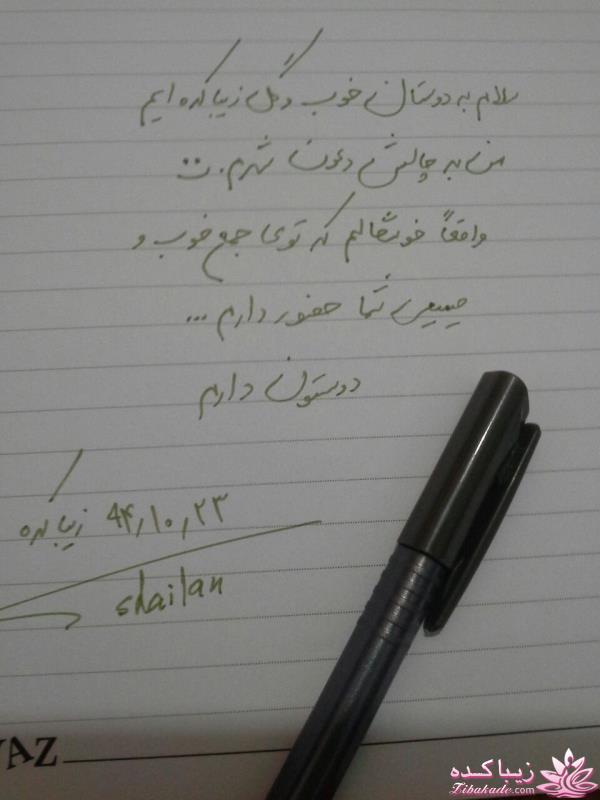 سلام به دوستان خوب و گل زیباکده ایم
من به چالش دعوت شدم.
واقعاً خوشحالم که توی جمع خوب و
صمیمی شما حضور دارم ...
دوستون دارم
زیباکده ۹۴٫۱۰٫۲۳
shailan
زیباکده
Zibakade.com